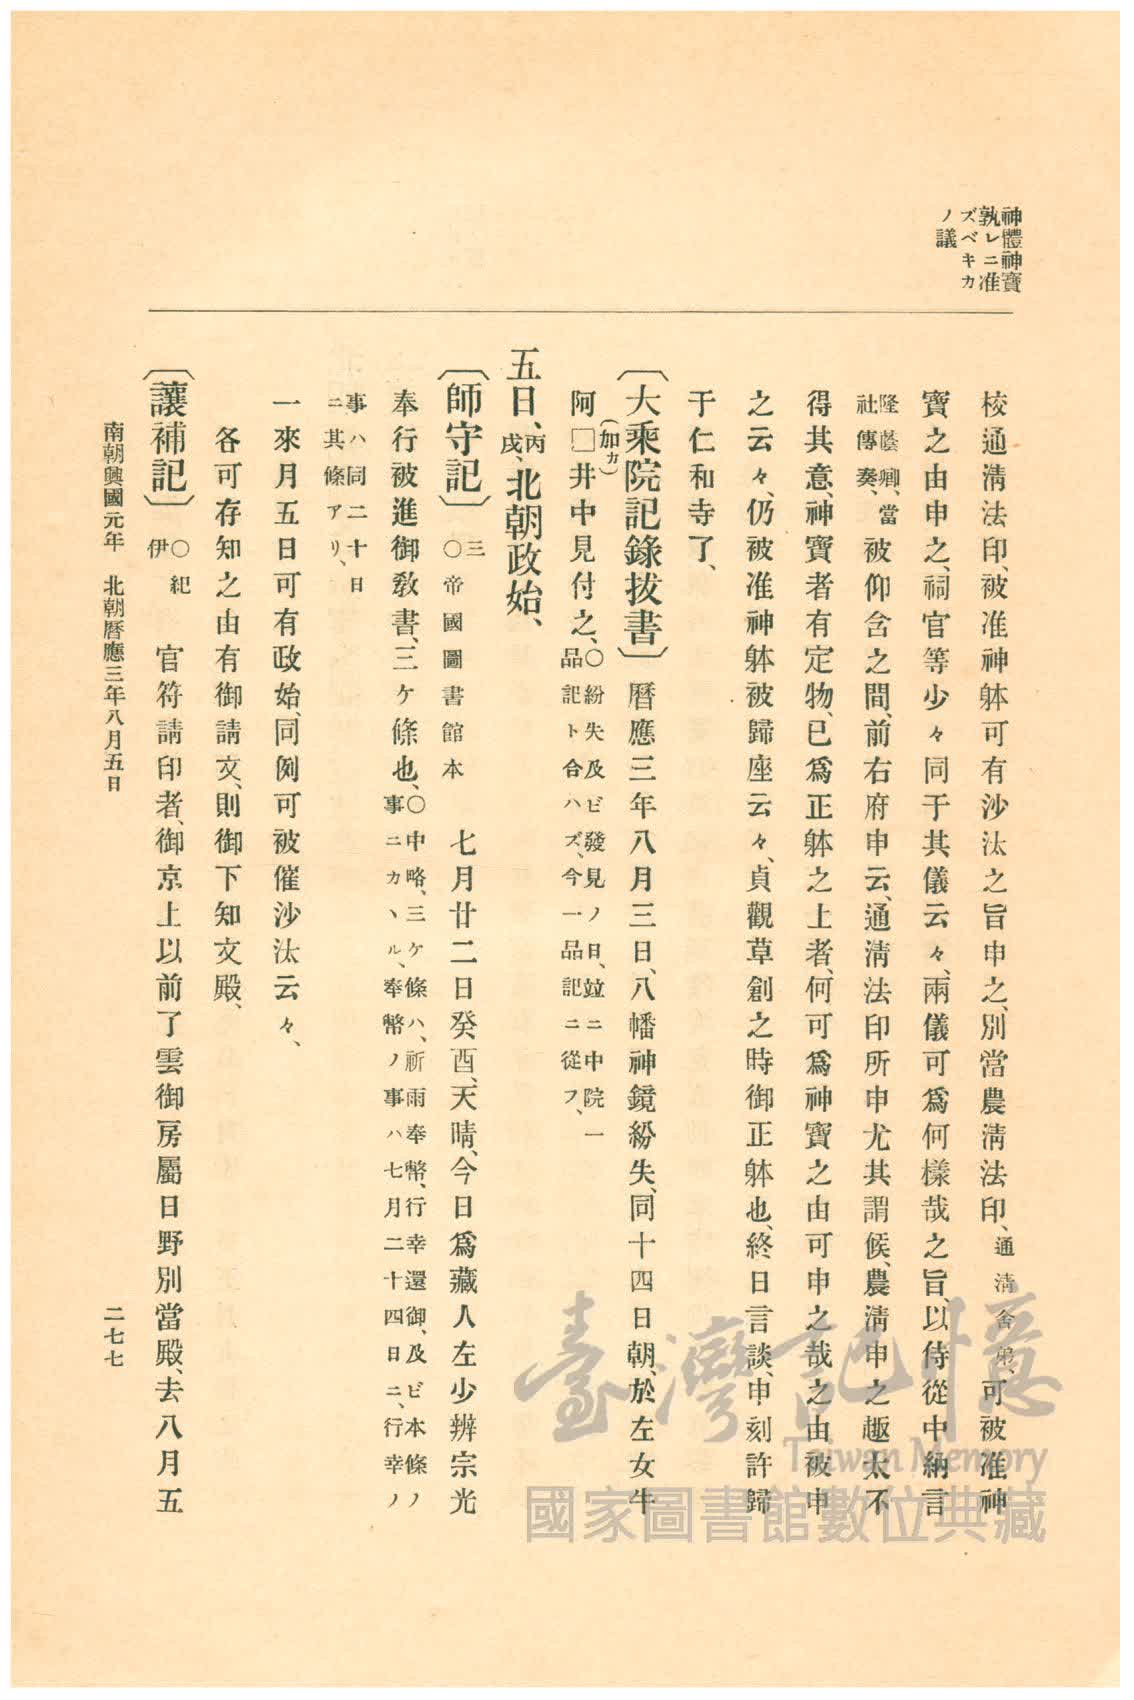 神體神寶
孰レニ准
ズベキカ
ノ議
校通淸法印、被准神躰可有沙汰之旨申之、別當農淸法印、通淸舍弟、可被准神
寶之由申之、祠官等少々同于其儀云々、兩儀可爲何樣哉之旨、以侍從中納言
隆蔭卿、當社傳奏、被仰含之間、前右府申云、通淸法印所申尤其謂候、農淸申之趣太不
得其意、神寶者有定物、已爲正躰之上者、何可爲神寶之由可申之哉之由被申
之云々、仍被准神躰被歸座云々、貞觀草創之時御正躰也、終日言談、申刻許歸
于仁和寺了、
〔大乘院記錄拔書〕曆應三年八月三日、八幡神鏡紛失、同十四日朝、於左女牛
(加カ)
阿□井中見付之、○紛失及ビ發見ノ日、竝ニ中院一品記ト合ハズ、今一品記ニ從フ、
五日、丙戌、北朝政始、
〔師守記〕三○帝國圖書館本 七月廿二日癸酉、天晴、今日爲藏人左少辨宗光
奉行被進御敎書、三ケ條也、○中略、三ケ條ハ、祈雨奉幣、行幸還御、及ビ本條ノ事ニカヽル、奉幣ノ事ハ七月二十四日ニ、行幸ノ
事ハ同二十日ニ其條アリ、
一來月五日可有政始、同例可被催沙汰云々、
各可存知之由有御請文、則御下知文殿、
〔讓補記〕○紀伊 官符請印者、御京上以前了雲御房屬日野別當殿、去八月五
南朝興國元年 北朝曆應三年八月五日
二七七
臺灣記憶
Taiwan Memory
國家圖書館數位典藏